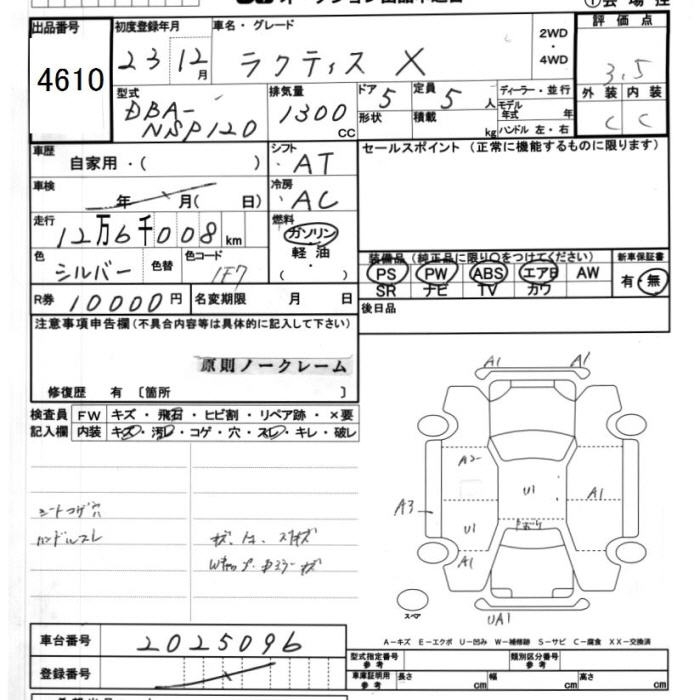 出品番号
4610
初度登録年月
23 12月
車名・グレード
ラクティス X
2WD
・
4WD
評価点
3.5
外装 内装
C C
型式
DBA-
NSP120
排気量
1300
CC
ドア 5
定員 5 人
形状
積載 kg
ディーラー・並行
モデル
年式 年
ハンドル 左・右
車歴
自家用・( )
シフト
・AT
車検
年 月( 日)
冷房
・AC
走行
12万6千008km
燃料
ガソリン
軽油
・
( )
色
シルバー
色替
色コード
1F7
R券 10000円
名変期限 月 日
セールスポイント (正常に機能するものに限ります)
装備品 (純正品に限り○をつけてください)
新車保証書
PS PW ABS エアB AW
SR ナビ TV カワ
有・無
後日品
注意事項申告欄 (不具合内容等は具体的に記入して下さい)
原則ノークレーム
修復歴 有 〔箇所 〕
検査員 FW キズ・飛石・ヒビ割・リペア跡・×要
記入欄 内装 キズ・汚レ・コゲ・穴・スレ・キレ・破レ
シートコゲ穴
ハンドルスレ
A1 A1
A2
U1
A1
A3
U1
A1
UA1
スペア
A-キズ E-エクボ U-凹み W-補修跡 S-サビ C-腐食 XX-交換済
車台番号 2025096
登録番号
型式指定番号
参考
類別区分番号
参考
車庫証明用
参考
長さ cm 幅 cm 高さ cm